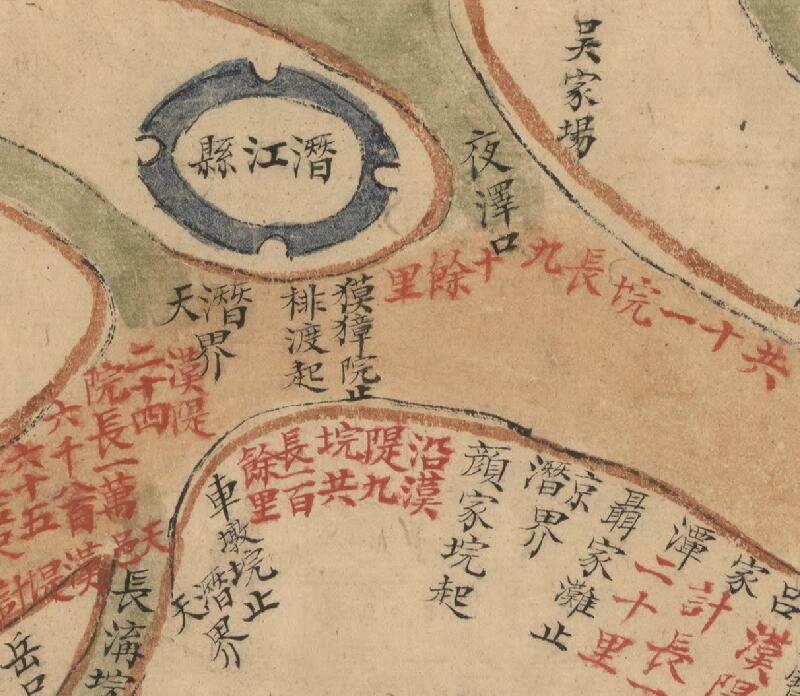 吴家場
潛江縣
夜澤口
共十一垸長九十餘里
獏獐院止
棑渡起
潛界
天
漢隄
二十四
院長一萬
六千八百
六十五
沿漢
隄九
垸共
長一百
餘里
顔家垸起
京
潛界
聶家灘止
潭
家
呂
計長
二十里
漢隄
車墩垸止
潛界
天
天
邑
漢
隄
計
長溝垸
岳口